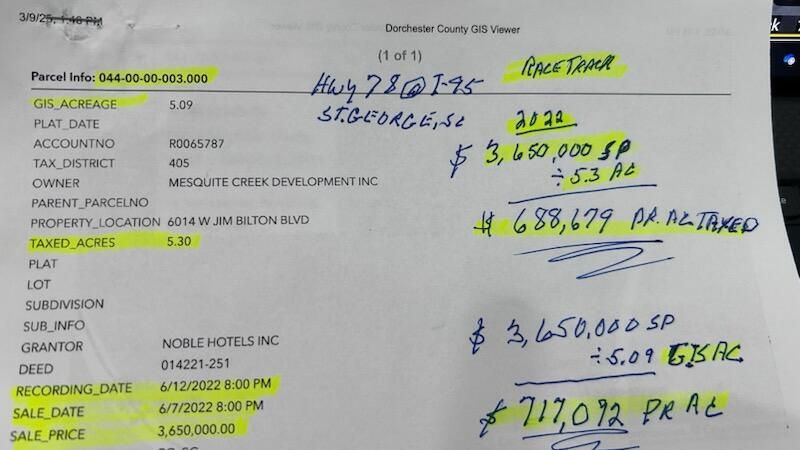 3/9/25, 1:48 PM
Dorchester County GIS Viewer
(1 of 1)
Parcel Info: 044-00-00-003.000
Hwy 78 @ I-95
RACETRACK
GIS_ACREAGE 5.09
ST. GEORGE, SC
2022
PLAT_DATE
ACCOUNTNO R0065787
$ 3,650,000 SP
TAX_DISTRICT 405
÷ 5.3 AC
OWNER MESQUITE CREEK DEVELOPMENT INC
PARENT_PARCELNO
PROPERTY_LOCATION 6014 W JIM BILTON BLVD
$ 688,679 PR. AC TAXED
TAXED_ACRES 5.30
PLAT
LOT
SUBDIVISION
SUB_INFO
$ 3,650,000 SP
GRANTOR NOBLE HOTELS INC
÷ 5.09 GIS AC
DEED 014221-251
RECORDING_DATE 6/12/2022 8:00 PM
$ 717,092 PR AC
SALE_DATE 6/7/2022 8:00 PM
SALE_PRICE 3,650,000.00